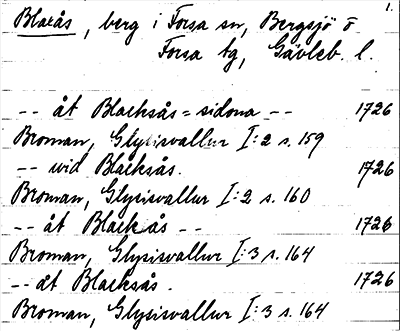 1.
Blaxås, berg i Forsa sn, Bergsjö o
Forsa tg, Gävleb. l.
-- åt Blacksås=sidona -- 1726
Broman, Glysisvallur I:2 s. 159
-- wid Blacksås. 1726
Broman, Glysisvallur I:2 s. 160
-- åt Blacksås -- 1726
Broman, Glysisvallur I:3 s. 164
-- åt Blacksås. 1726
Broman, Glysisvallur I:3 s. 164